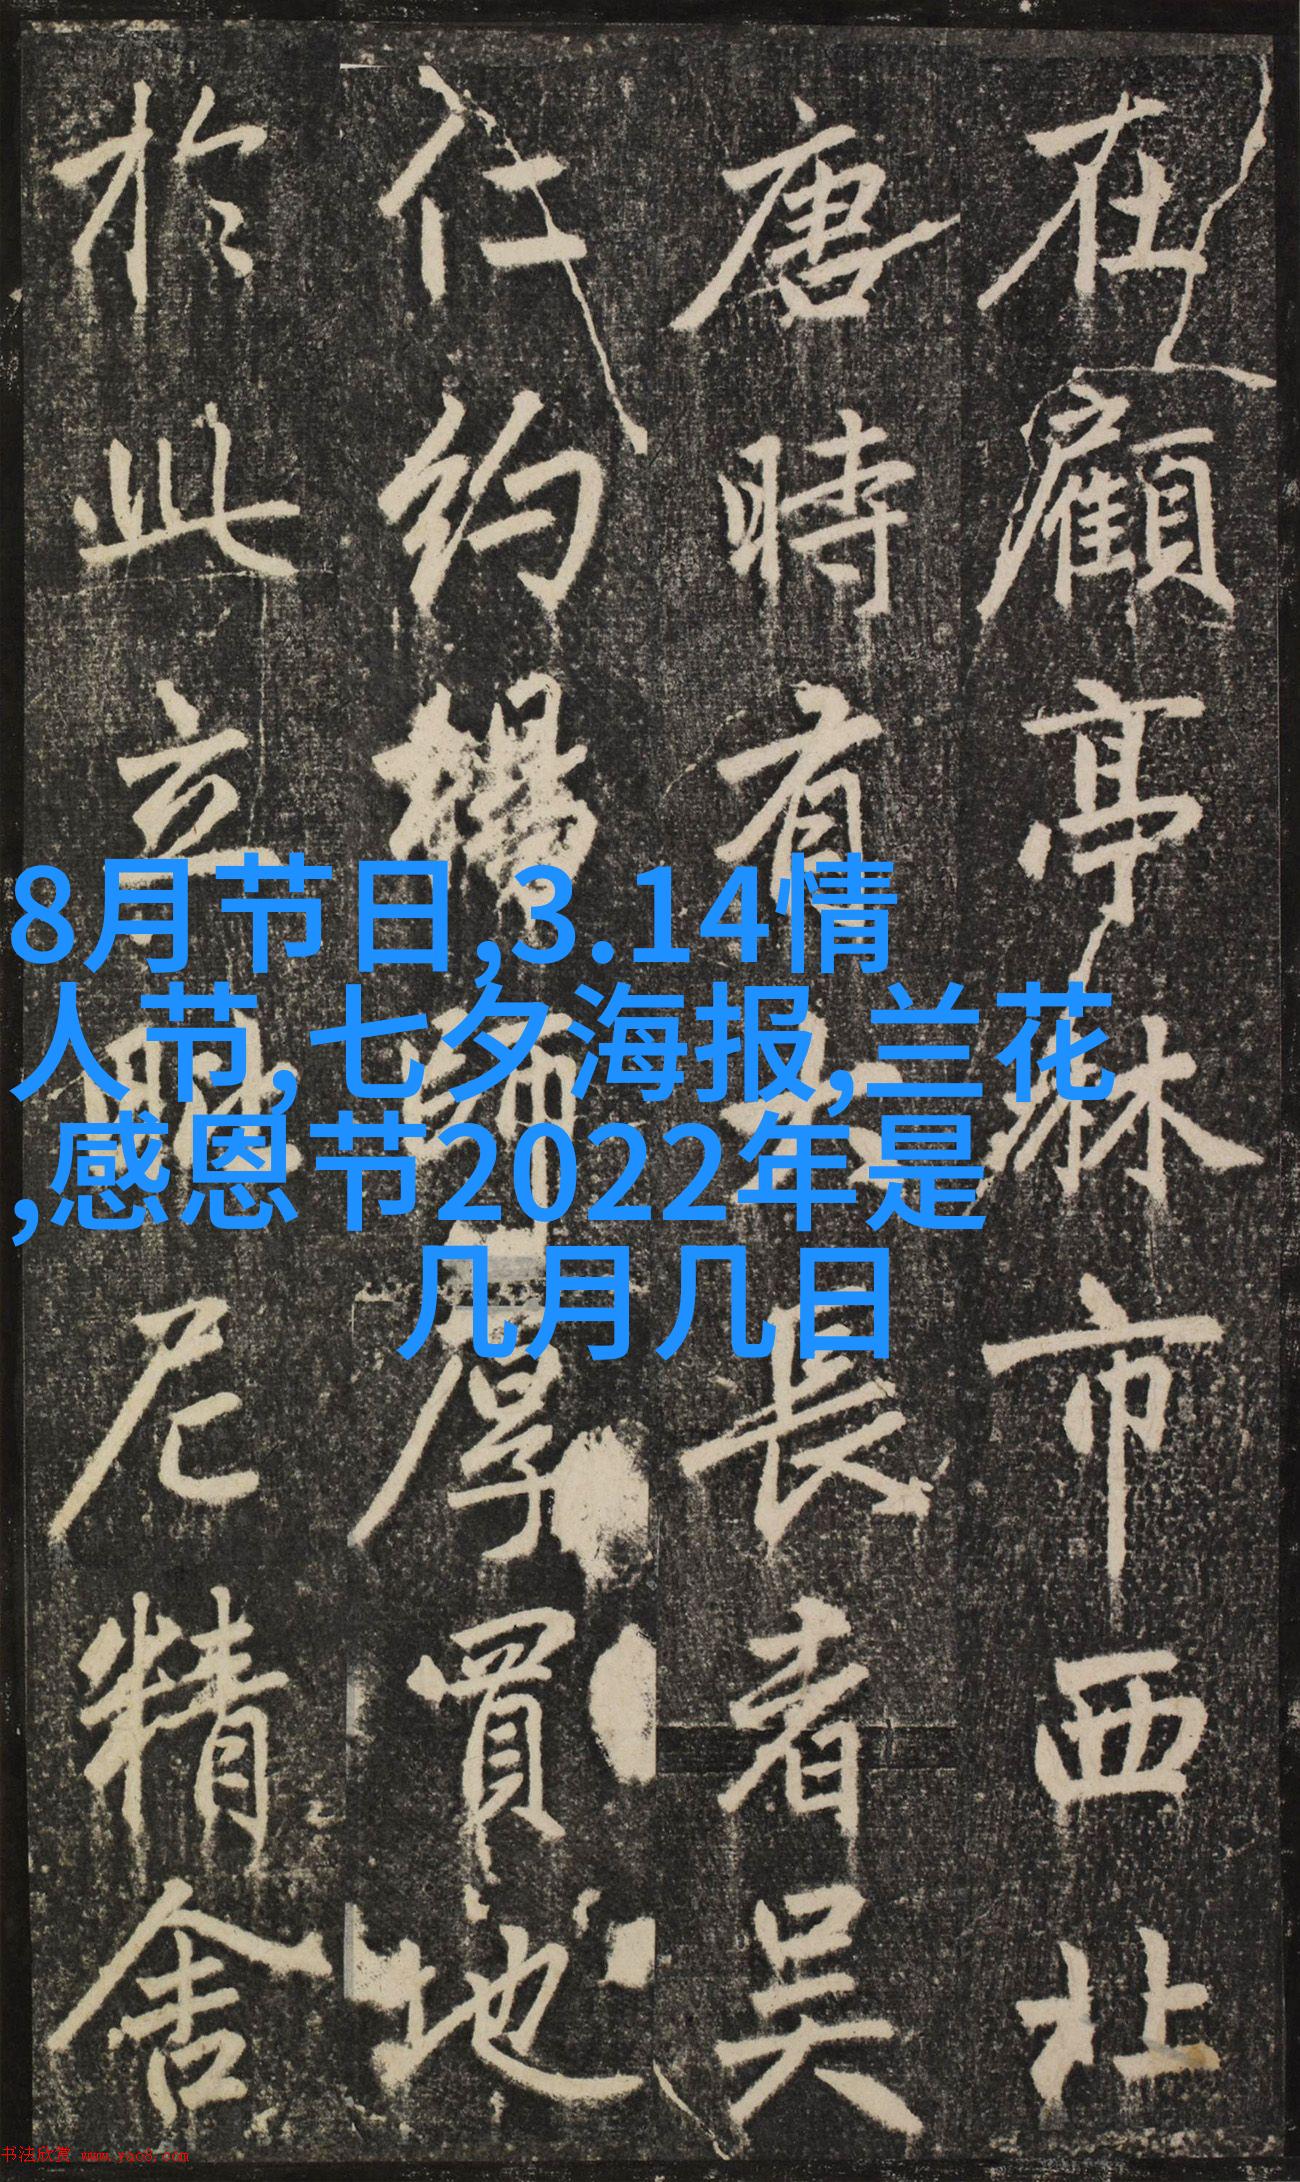 在顧亭林市西北
唐時有大長者吳
仁約楊師厚買地
於此立尼精舍
8月节日,3.14情
人节,七夕海报,兰花
,感恩节2022年是
几月几日
书法欣赏 www.yac8.com